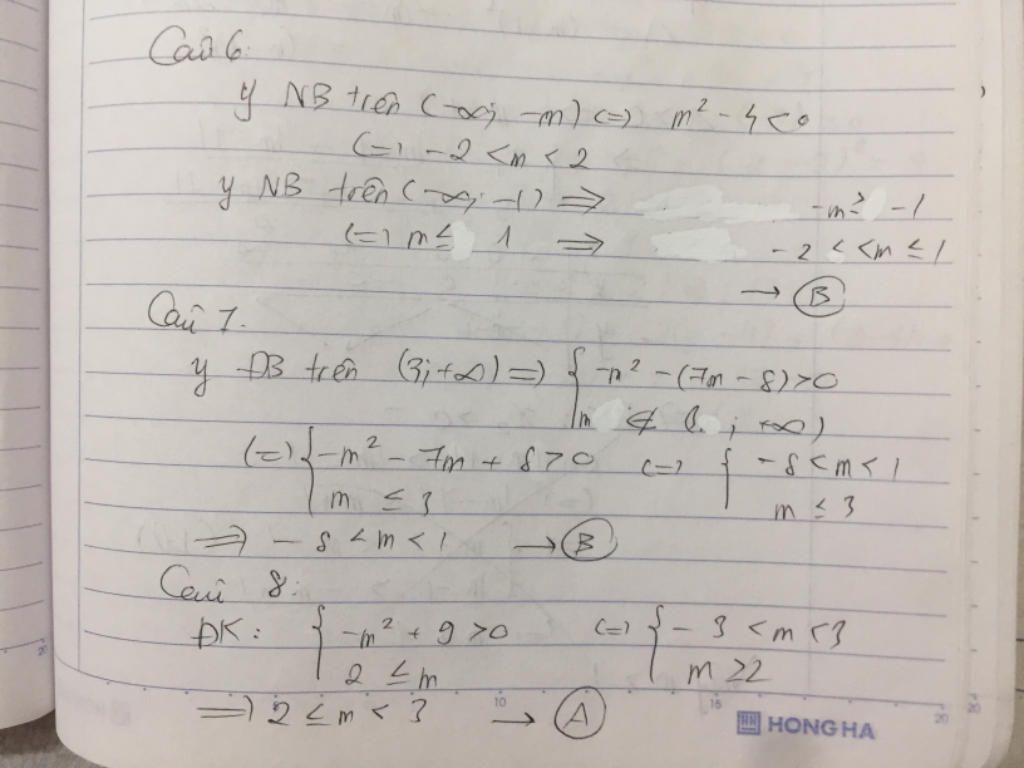 Câu 6:
y NB trên (-∞; -m) (=) m² - 4 < 0
(=) - 2 < m < 2
y NB trên (-∞; -1) => -m ≥ -1
(=) m ≤ 1 => - 2 < < m ≤ 1
→ B
Câu 7.
y ĐB trên (3; +∞) =) { -m² - (7m - 8) > 0
m ∉ ( ; +∞)
(=) { -m² - 7m + 8 > 0 (=) { - 8 < m < 1
m ≤ 3 m ≤ 3
=> - 8 < m < 1 → B
Câu 8:
ĐK: { -m² + 9 > 0 (=) { - 3 < m < 3
2 ≤ m m ≥ 2
=) 2 ≤ m < 3 → A
10 15 20 20
HONG HA